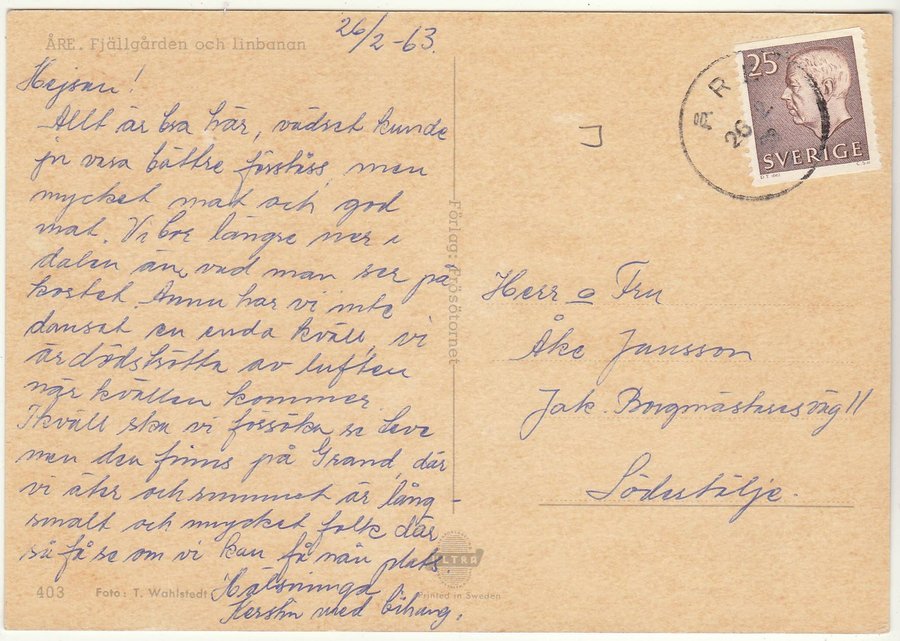 ÅRE. Fjällgården och linbanan
26/2-63.
Hejsan!
Allt är bra här, vädret kunde
ju vara bättre förståss, men
mycket mat och god
mat. Vi bor längre ner i
dalen än vad man ser på
kortet. Ännu har vi inte
dansat en enda kväll, vi
är dödströtta av luften
när kvällen kommer.
Ikväll ska vi försöka se
men den finns på Grand, där
vi äter och rummet är lång-
smalt och mycket folk där
så få se om vi kan få nån plats.
Hälsninga
Kerstin med bihang.
403 Foto: T. Wahlstedt
Förlag: Frösötornet
ULTRA
Printed in Sweden
25
SVERIGE
ÅRE
26 2
Herr o Fru
Åke Jansson
Jak. Borgmästaresväg 11
Södertälje.